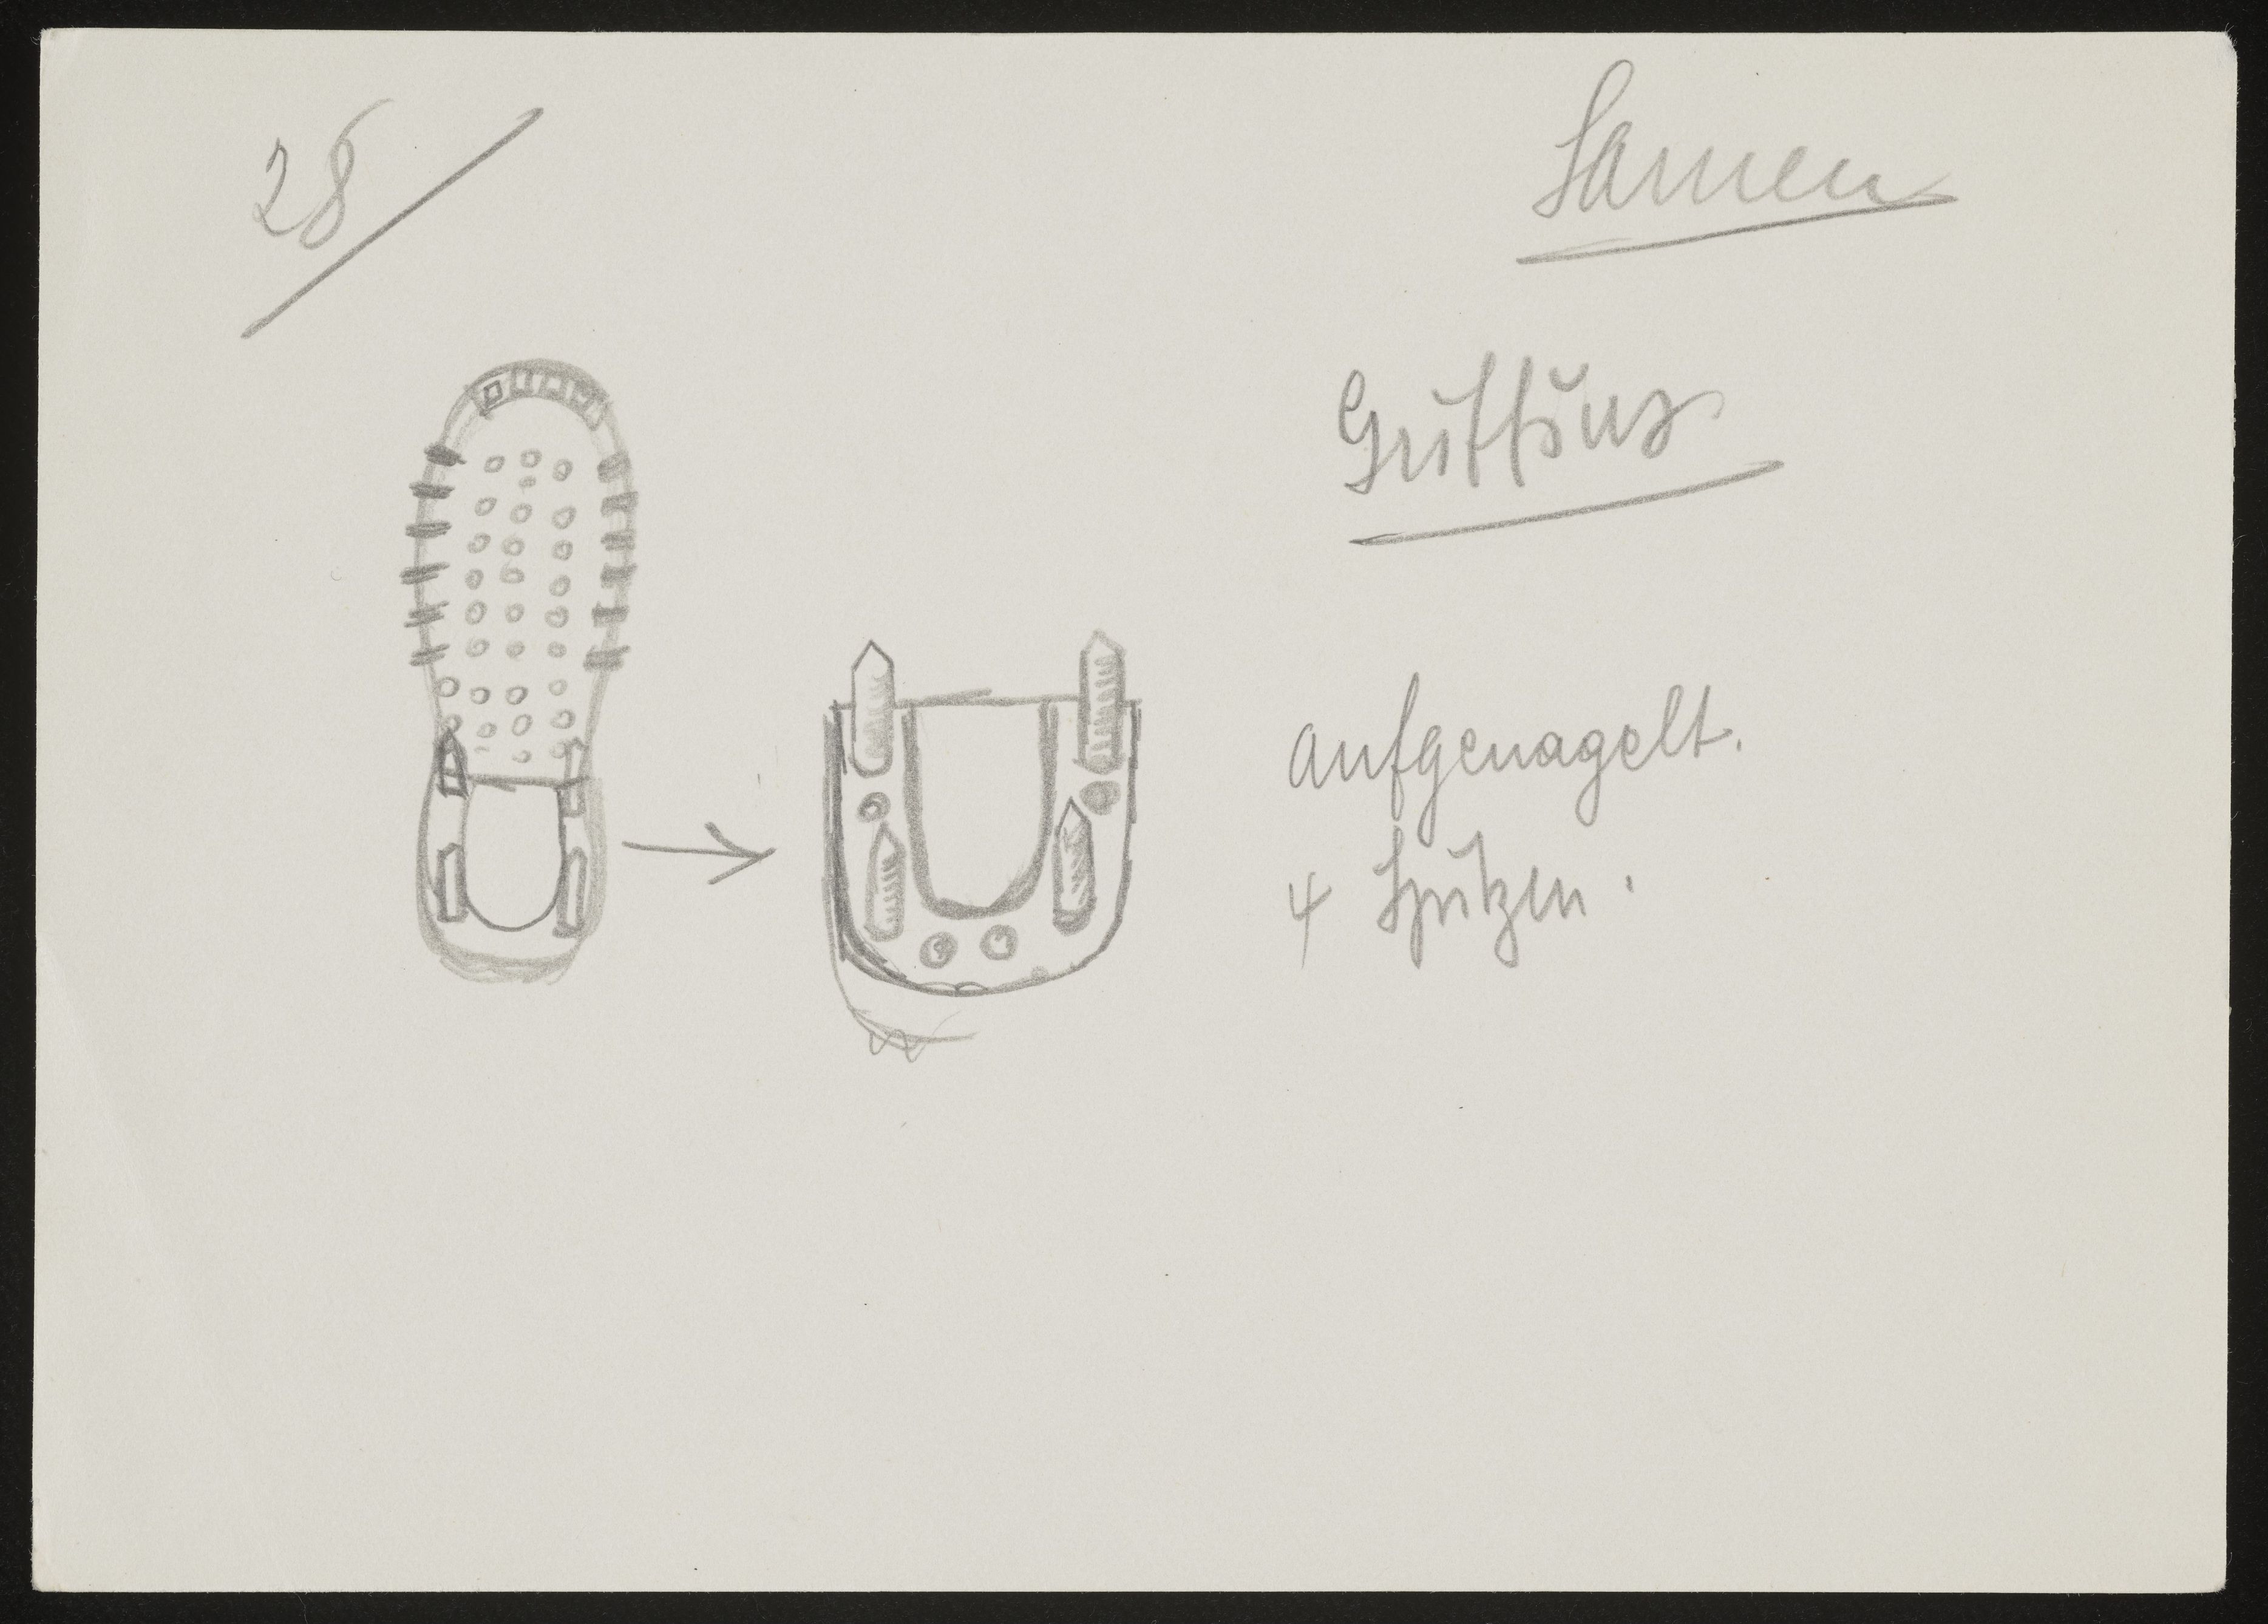 28
Sarnen
aufgenagelt.
4 Spitzen.